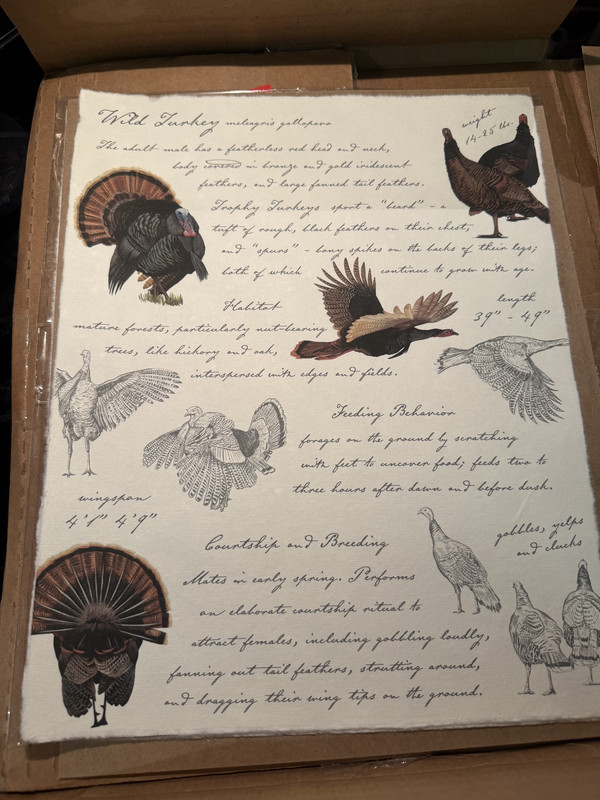 Wild Turkey meleagris gallopavo
weight
14-25 lbs.
The adult male has a featherless red head and neck,
body covered in bronze and gold iridescent
feathers, and large fanned tail feathers.
Trophy Turkeys sport a "beard" - a
tuft of rough, black feathers on their chest,
and "spurs" - bony spikes on the backs of their legs;
both of which continue to grow with age.
Habitat
mature forests, particularly nut-bearing
trees, like hickory and oak,
interspersed with edges and fields.
length
39" - 49"
Feeding Behavior
forages on the ground by scratching
with feet to uncover food; feeds two to
three hours after dawn and before dusk.
wingspan
4'1" 4'9"
gobbles, yelps
and clucks
Courtship and Breeding
Mates in early spring. Performs
an elaborate courtship ritual to
attract females, including gobbling loudly,
fanning out tail feathers, strutting around,
and dragging their wing tips on the ground.